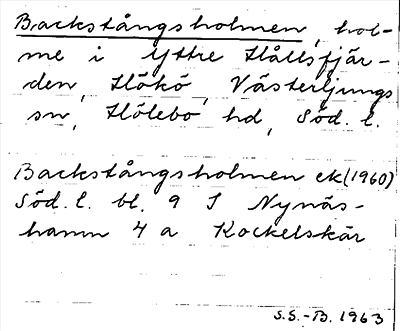 Backstångsholmen, hol-
me i Yttre Hållsfjär-
den, Hökö, Västerljungs
sn, Hölebo hd, Söd. l.
Backstångsholmen ek (1960)
Söd. l. bl. 9 S Nynäs-
hamn 4 a Kockelskär
S.S.-B. 1963